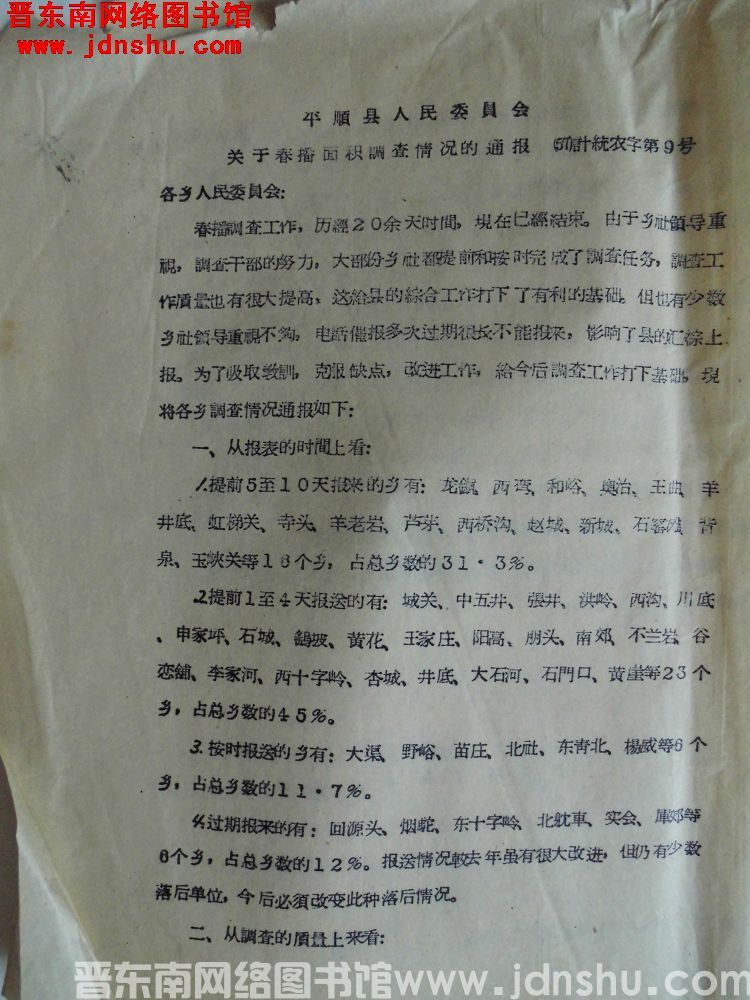 晋东南网络图书馆
www.jdnshu.com
平順县人民委員会
关于春播面积調查情况的通报 (57)計統农字第9号
各乡人民委員会:
春播調查工作，历經20余天时間，現在已經結束。由于乡社領导重
視，調查干部的努力，大部份乡社都提前和按时完成了調查任务，調查工
作质量也有很大提高，这給县的綜合工作打下了有利的基础。但也有少数
乡社領导重視不夠，电話催报多次过期很长不能报来，影响了县的汇綜上
报。为了吸取教訓，克服缺点，改进工作，給今后調查工作打下基础，現
将各乡調查情况通报如下:
一、从报表的时間上看:
1.提前5至10天报来的乡有: 龙鎮、西湾、和峪、奥治、王曲、羊
井底、虹梯关、寺头、羊老岩、芦芽、西桥沟、赵城、新城、石窰滩、背
泉、玉峽关等16个乡，占总乡数的31·3%。
2.提前1至4天报送的有: 城关、中五井、張井、洪岭、西沟、川底
、申家坪、石城、鷂坡、黄花、王家庄、阳高、朋头、南郊、不兰岩、谷
恋舖、李家河、西十字岭、杏城、井底、大石河、石門口、黄崖等23个
乡，占总乡数的45%。
3.按时报送的乡有: 大渠、野峪、苗庄、北社、东青北、楊威等6个
乡，占总乡数的11·7%。
4.过期报来的有: 回源头、烟駝、东十字岭、北躭車、实会、庫郊等
6个乡，占总乡数的12%。报送情况較去年虽有很大改进，但仍有少数
落后单位，今后必須改变此种落后情况。
二、从調查的质量上来看:
晋东南网络图书馆www.jdnshu.com